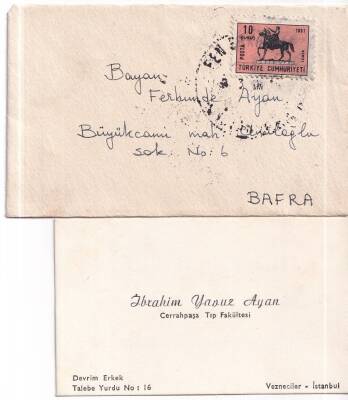 10
KURUŞ
POSTA
1937
İZMİR
TÜRKİYE CUMHURİYETİ
FEN
Bayan
Ferhunde Ayan
Büyükcami mah.
sok. No: 6
BAFRA
İbrahim Yavuz Ayan
Cerrahpaşa Tıp Fakültesi
Devrim Erkek
Talebe Yurdu No : 16
Vezneciler - İstanbul